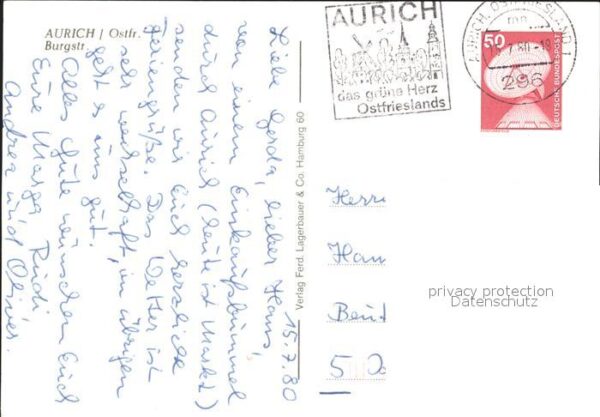 AURICH / Ostfr.
Burgstr.
15.7.80
Liebe Gerda, lieber Hans,
von einem Einkaufsbummel
durch Aurich (heute ist Markt)
senden wir Euch herzliche
Feriengrüße. Das Wetter ist
sehr wechselhaft, im übrigen
geht es uns gut.
Alles Gute wünschen Euch
Eure Marga Rudi
Andrea und Oliver.
Verlag Ferd. Lagerbauer & Co. Hamburg 60
AURICH
das grüne Herz
Ostfrieslands
AURICH, OSTFRIESLAND 1
mm
296
50
DEUTSCHE BUNDESPOST
Herrn
Han
privacy protection
Datenschutz